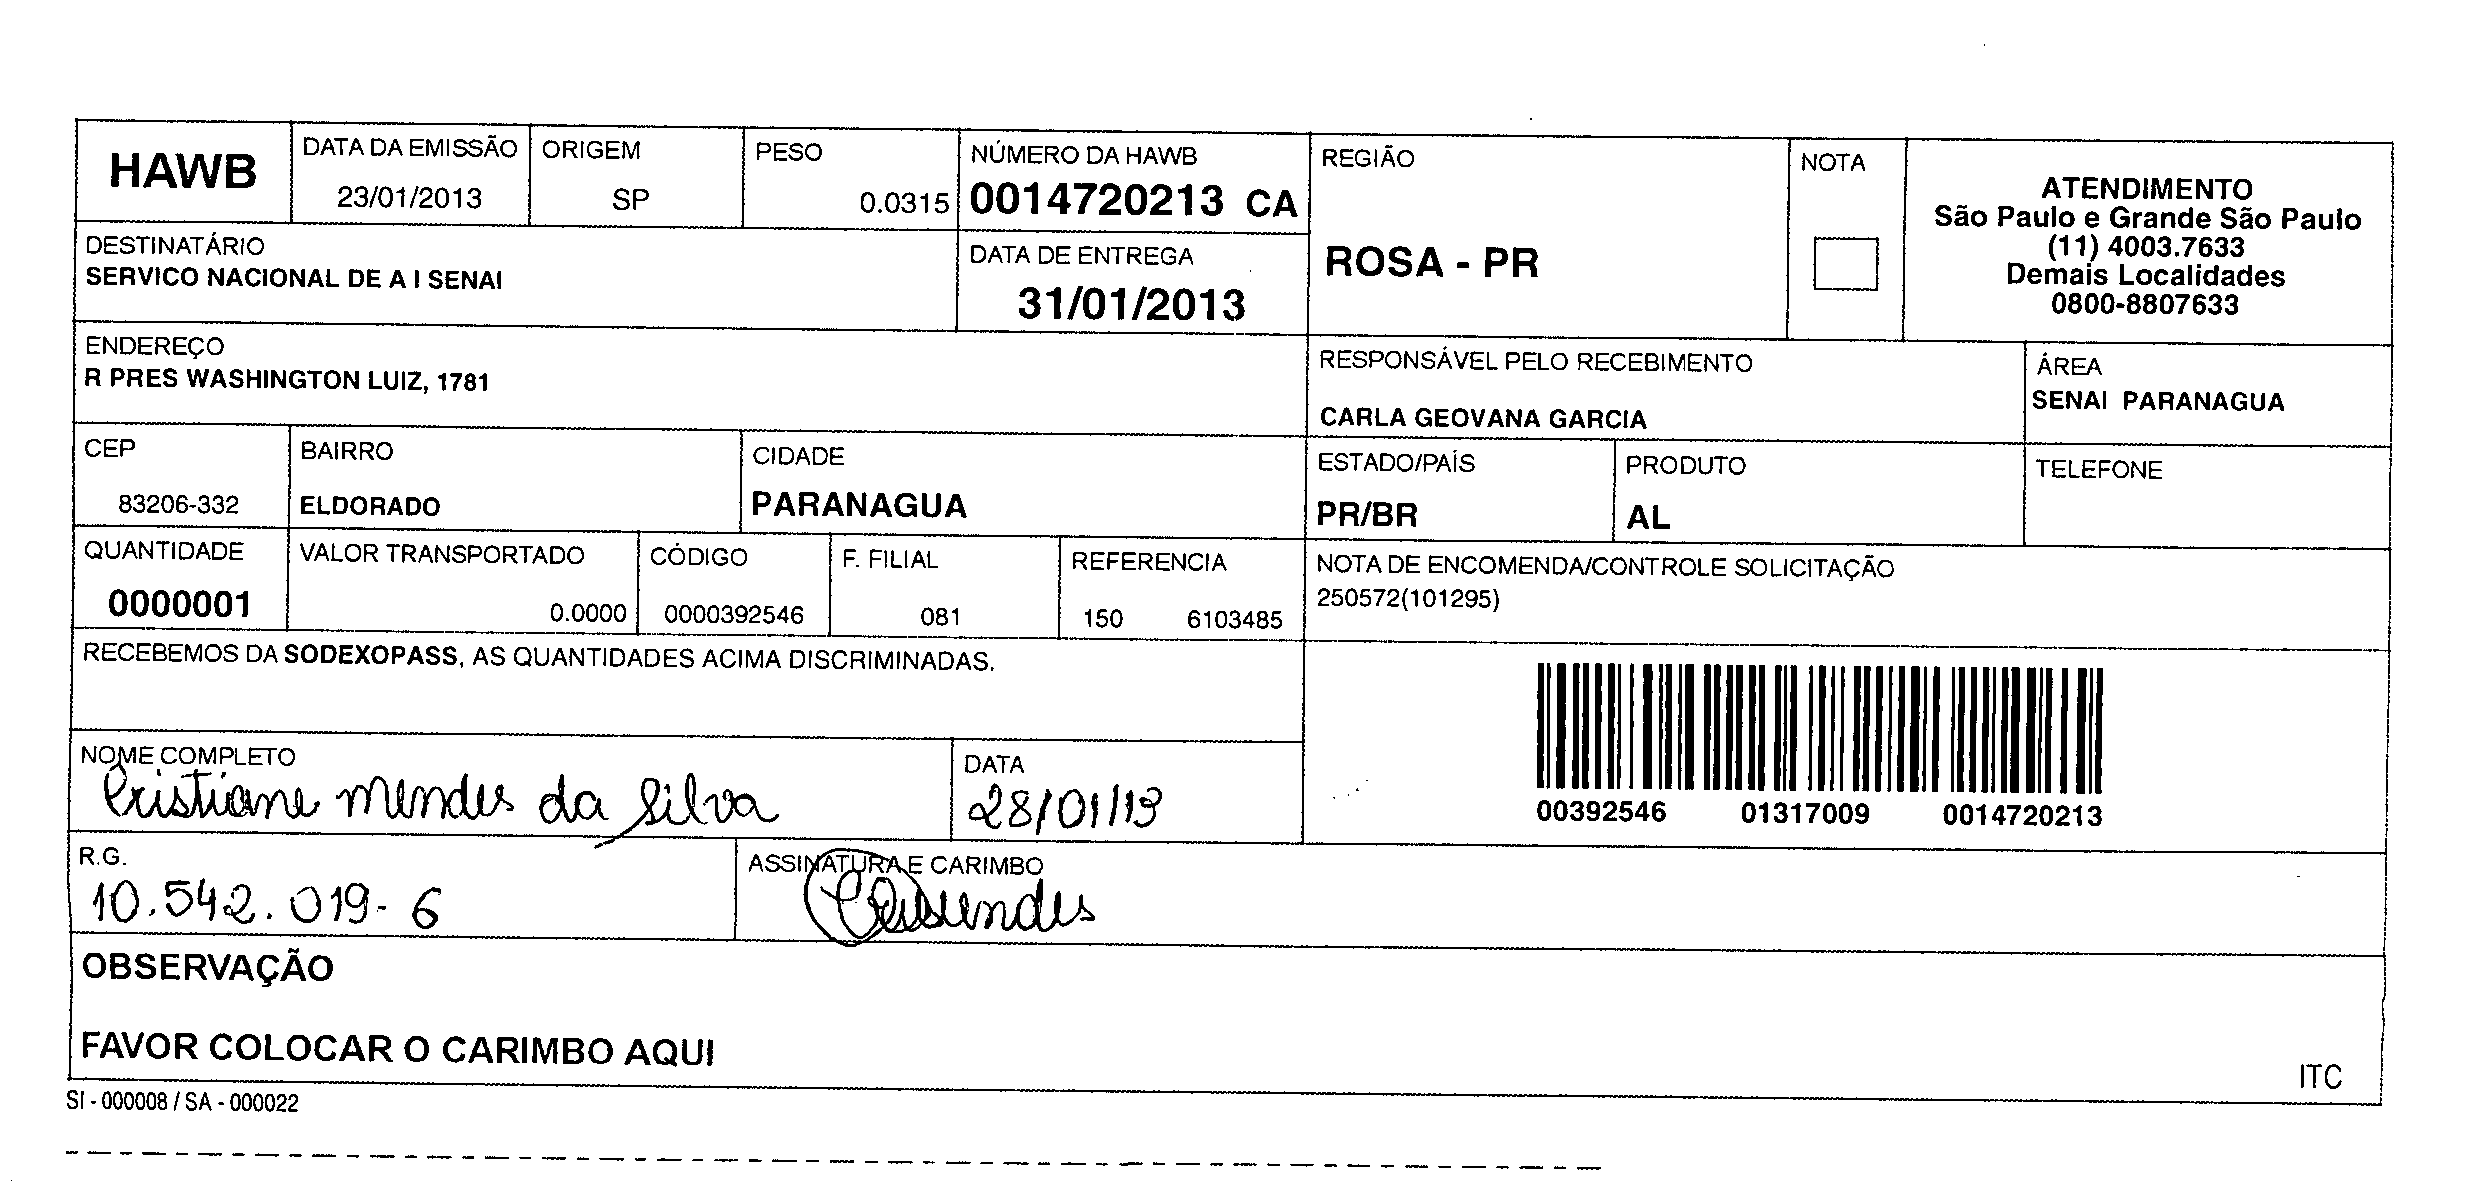 HAWB
DATA DA EMISSÃO
23/01/2013
ORIGEM
SP
PESO
0.0315
NÚMERO DA HAWB
0014720213 CA
REGIÃO
ROSA - PR
NOTA
ATENDIMENTO
São Paulo e Grande São Paulo
(11) 4003.7633
Demais Localidades
0800-8807633
DESTINATÁRIO
SERVICO NACIONAL DE A I SENAI
DATA DE ENTREGA
31/01/2013
ENDEREÇO
R PRES WASHINGTON LUIZ, 1781
RESPONSÁVEL PELO RECEBIMENTO
CARLA GEOVANA GARCIA
ÁREA
SENAI PARANAGUA
CEP
83206-332
BAIRRO
ELDORADO
CIDADE
PARANAGUA
ESTADO/PAÍS
PR/BR
PRODUTO
AL
TELEFONE
QUANTIDADE
0000001
VALOR TRANSPORTADO
0.0000
CÓDIGO
0000392546
F. FILIAL
081
REFERENCIA
150 6103485
NOTA DE ENCOMENDA/CONTROLE SOLICITAÇÃO
250572(101295)
RECEBEMOS DA SODEXOPASS, AS QUANTIDADES ACIMA DISCRIMINADAS.
00392546 01317009 0014720213
NOME COMPLETO
Cristiane Mendes da Silva
DATA
28/01/13
R.G.
10.542.019-6
ASSINATURA E CARIMBO
OBSERVAÇÃO
FAVOR COLOCAR O CARIMBO AQUI
ITC
SI - 000008 / SA - 000022